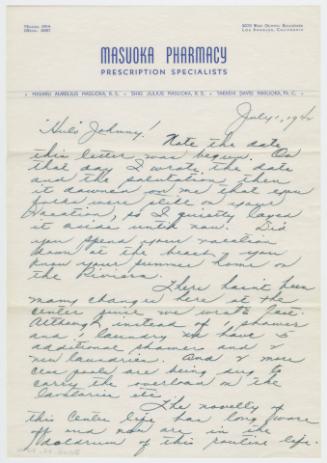 MASUOKA PHARMACY
PRESCRIPTION SPECIALISTS
LOS ANGELES, CALIFORNIA
• MASARU AMBELIUS MASUOKA, B. S. • SHIG JULIUS MASUOKA, B. S. • TAKESHI DAVIS MASUOKA, PH. C. •
July 1, 1942
"Hulo Johnny!
Note the date
this letter was begun. On
that day I wrote the date
and the salutation, then
it dawned on me that you
folks were still on your
vacation, so I quietly layed
it aside until now. Did
you spend your vacation
down at the beach, you
know your summer home on
the Riviera.
There hasn't been
many changes here at the
center since we wrote last.
Although instead of 1 shower
and 1 laundry we have
additional showers and 2
new laundries. And 2 more
cess pools are being dug to
carry the overload on the
lavatories etc.
The novelty of
this Center life has long wore
off and now are in the
doldrum of this routine life.